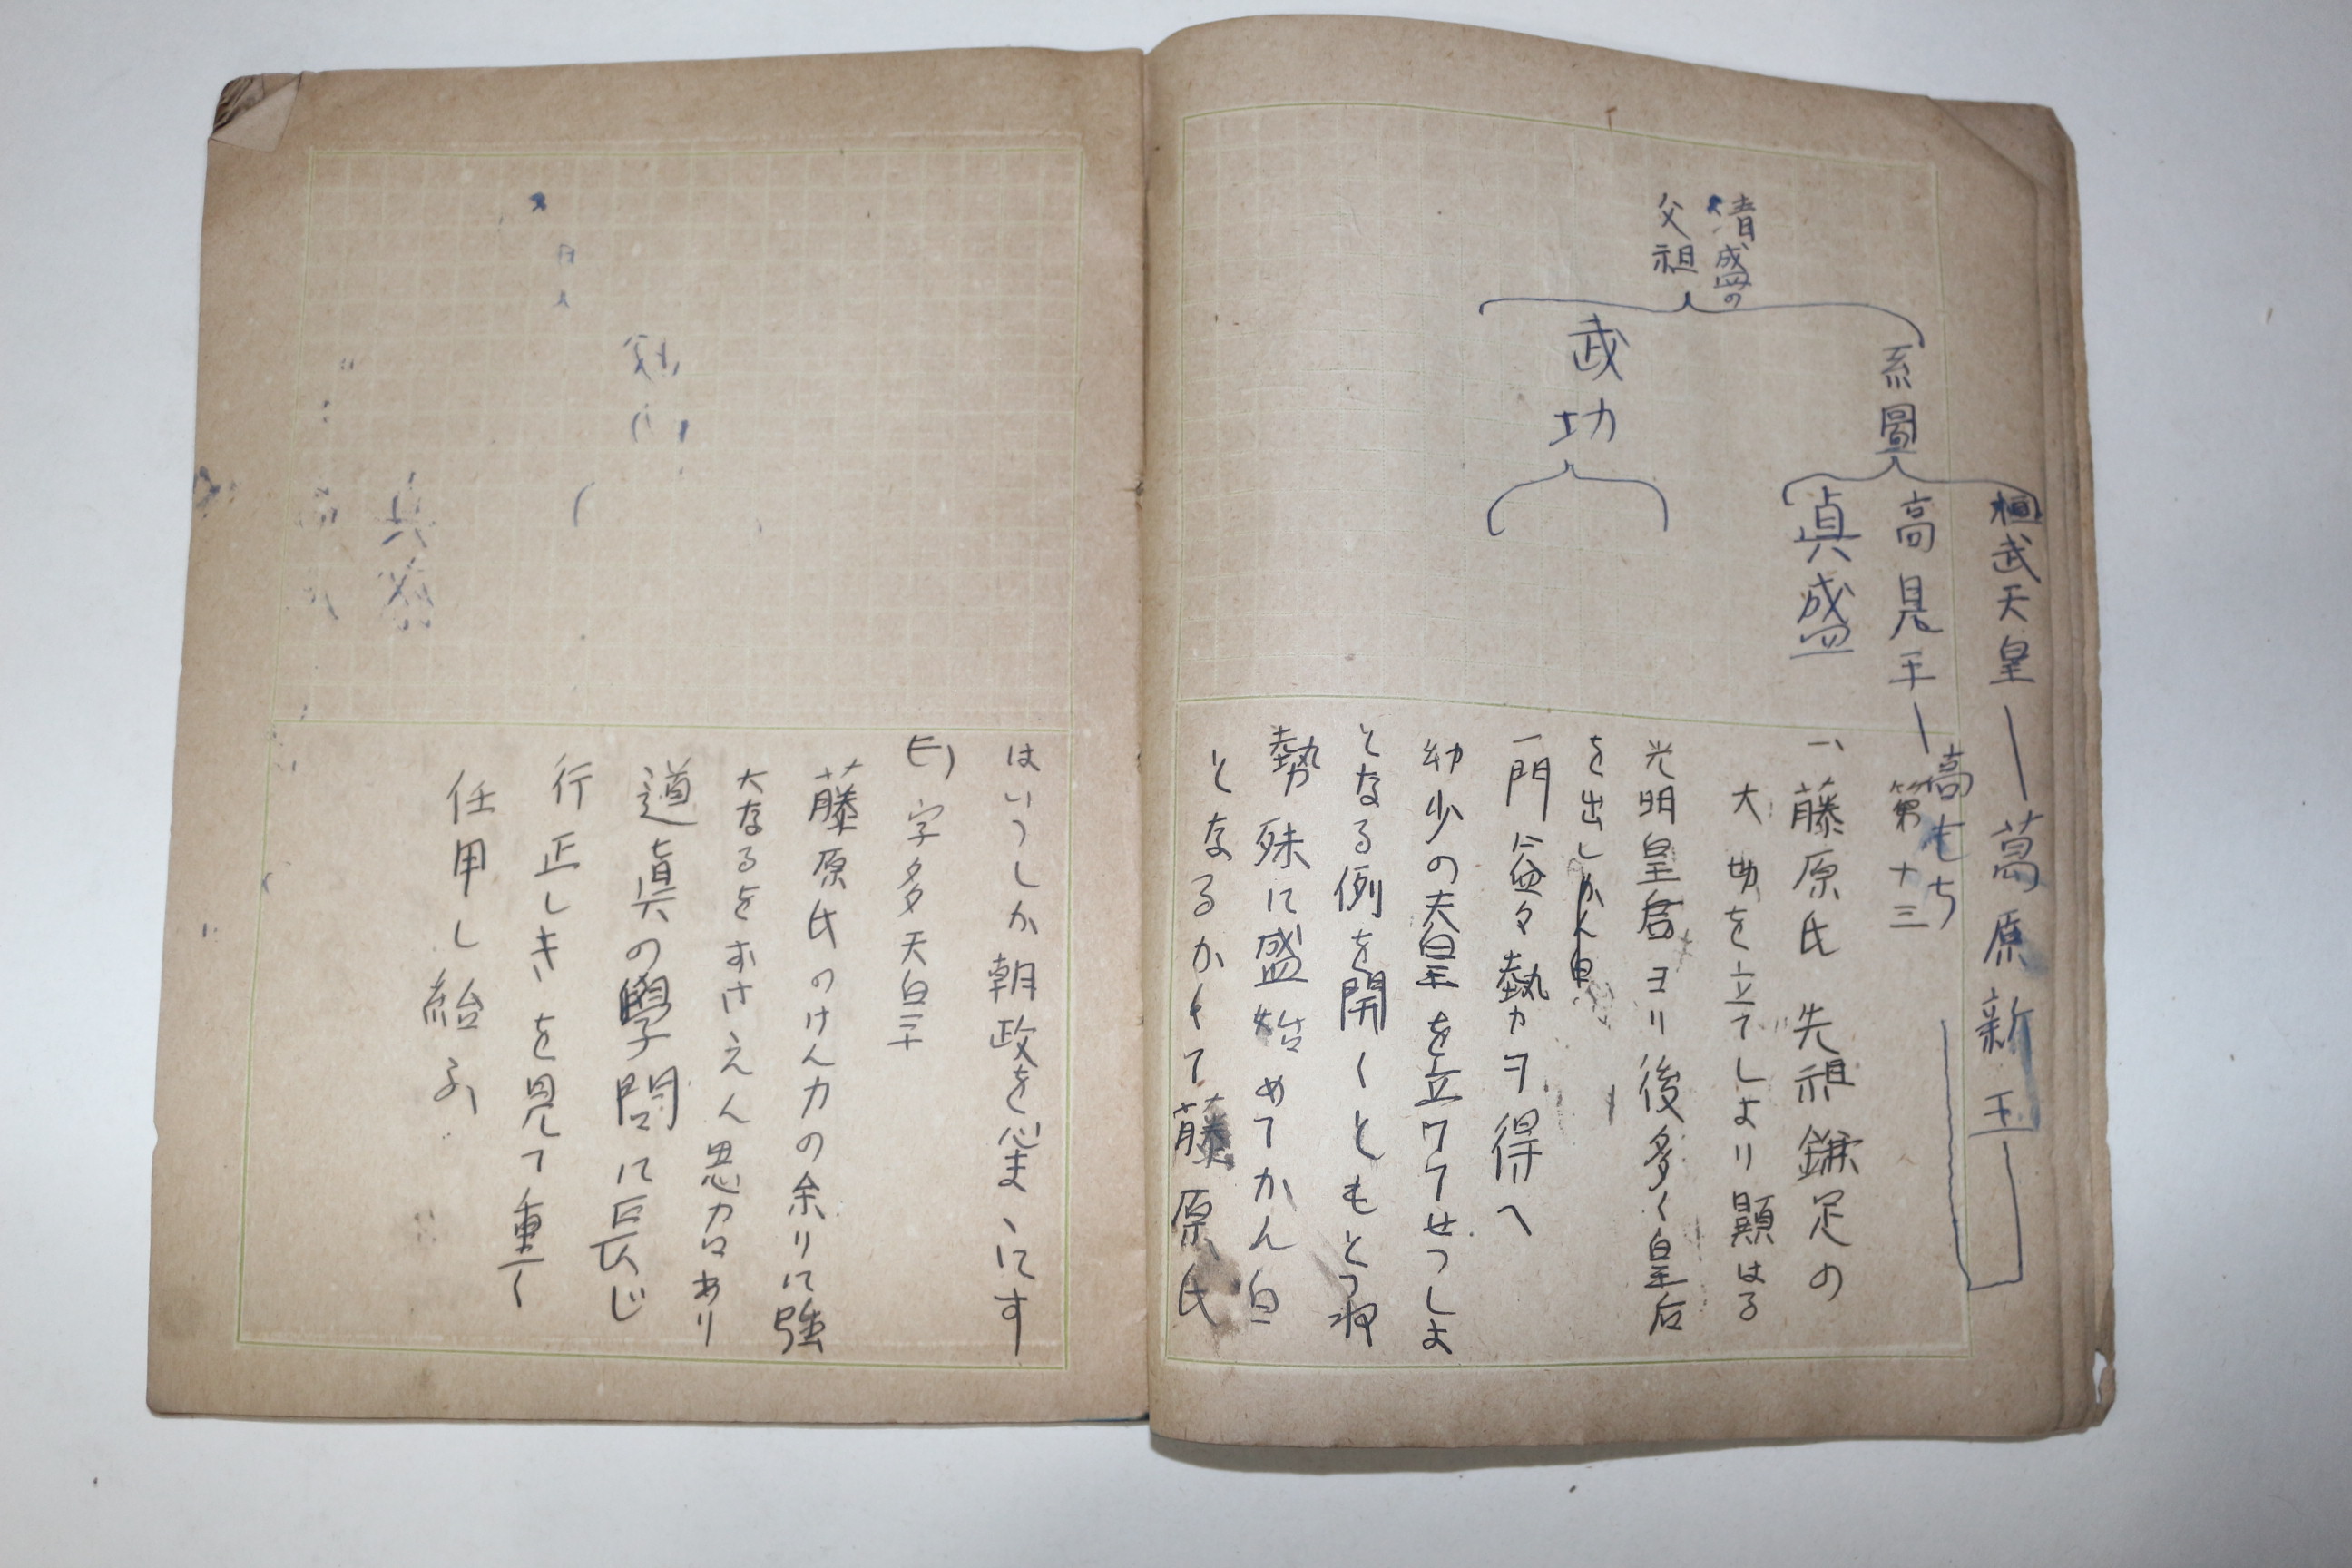 清盛の
父祖
系圖
桓武天皇—葛原新王—
高見王—高もち
貞盛
武功
第十三
一、藤原氏 先祖鎌足の
大功を立てしより顯はる
光明皇后ヨリ後多く皇后
を出し
一門益々勢力ヲ得へ
幼少の天皇を立ててせつしよ
となる例を開くともとつね
勢殊に盛始めてかん白
となるかくて藤原氏
はいつしか朝政を心まゝにす
宇多天皇
藤原氏のけん力の余りに強
大なるをおさえん思召あり
道眞の學問に長じ
行正しきを見て重く
任用し給ふ